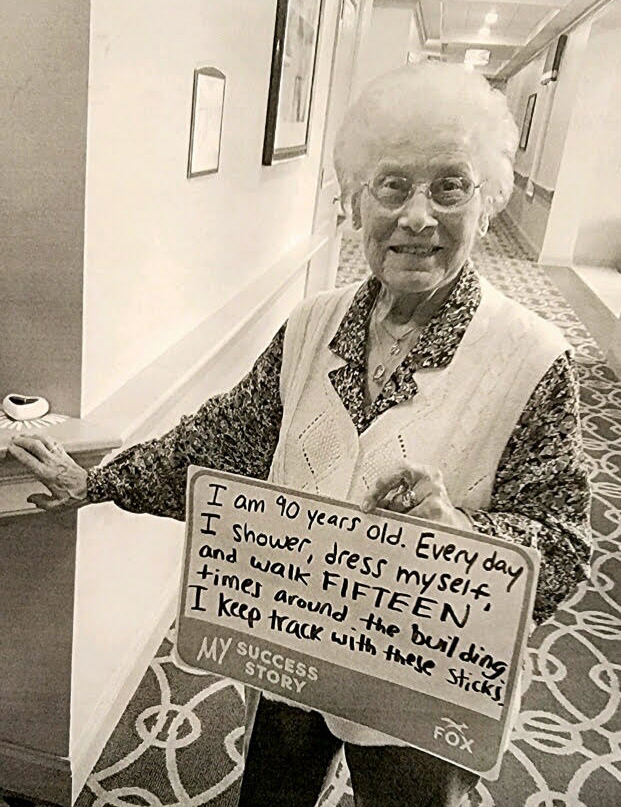 I am 90 years old. Every day
I shower, dress myself,
and walk FIFTEEN
times around the building.
I keep track with these sticks.
MY SUCCESS
STORY
FOX